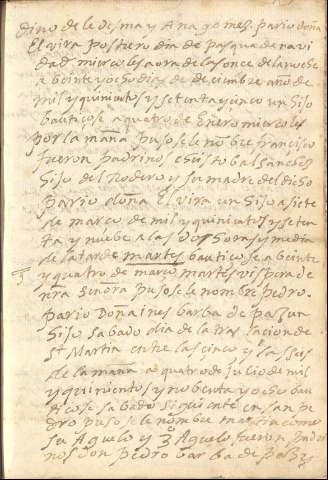 dino de ledesma y Ana gomez. pario doña
Elvira postrero dia de pasqua de navi
dad miercoles a ora de las once de la noche
a beinte y ocho dias de deciembre año de
mil y quinientos y setenta y cinco un hijo
bautico se a quatro de henero miercoles
por la mañana puso se le nonbre francisco
fueron padrinos christobal sanchez
hijo del Rodero y su madre del dicho
pario doña Elvira un hijo a siete
de março de mil y quinientos y seten
ta y nuebe a las dos horas y media
de la tarde martes bautico se a beinte
y quatro de março martes vispera de
nra Señora puso se le nonbre pedro.
pario Doña ines barba de paz un
hijo sabado dia de la traslacion de
St Martin entre las cinco y las seis
de la mañana a quatro de julio de mil
y quinientos y nobenta y ocho bau
tico se sabado siguiente en san pe
dro puso se le nombre martin como
su Aguelo y 3 Aguelo fueron padri
nos don pedro barba de paz y